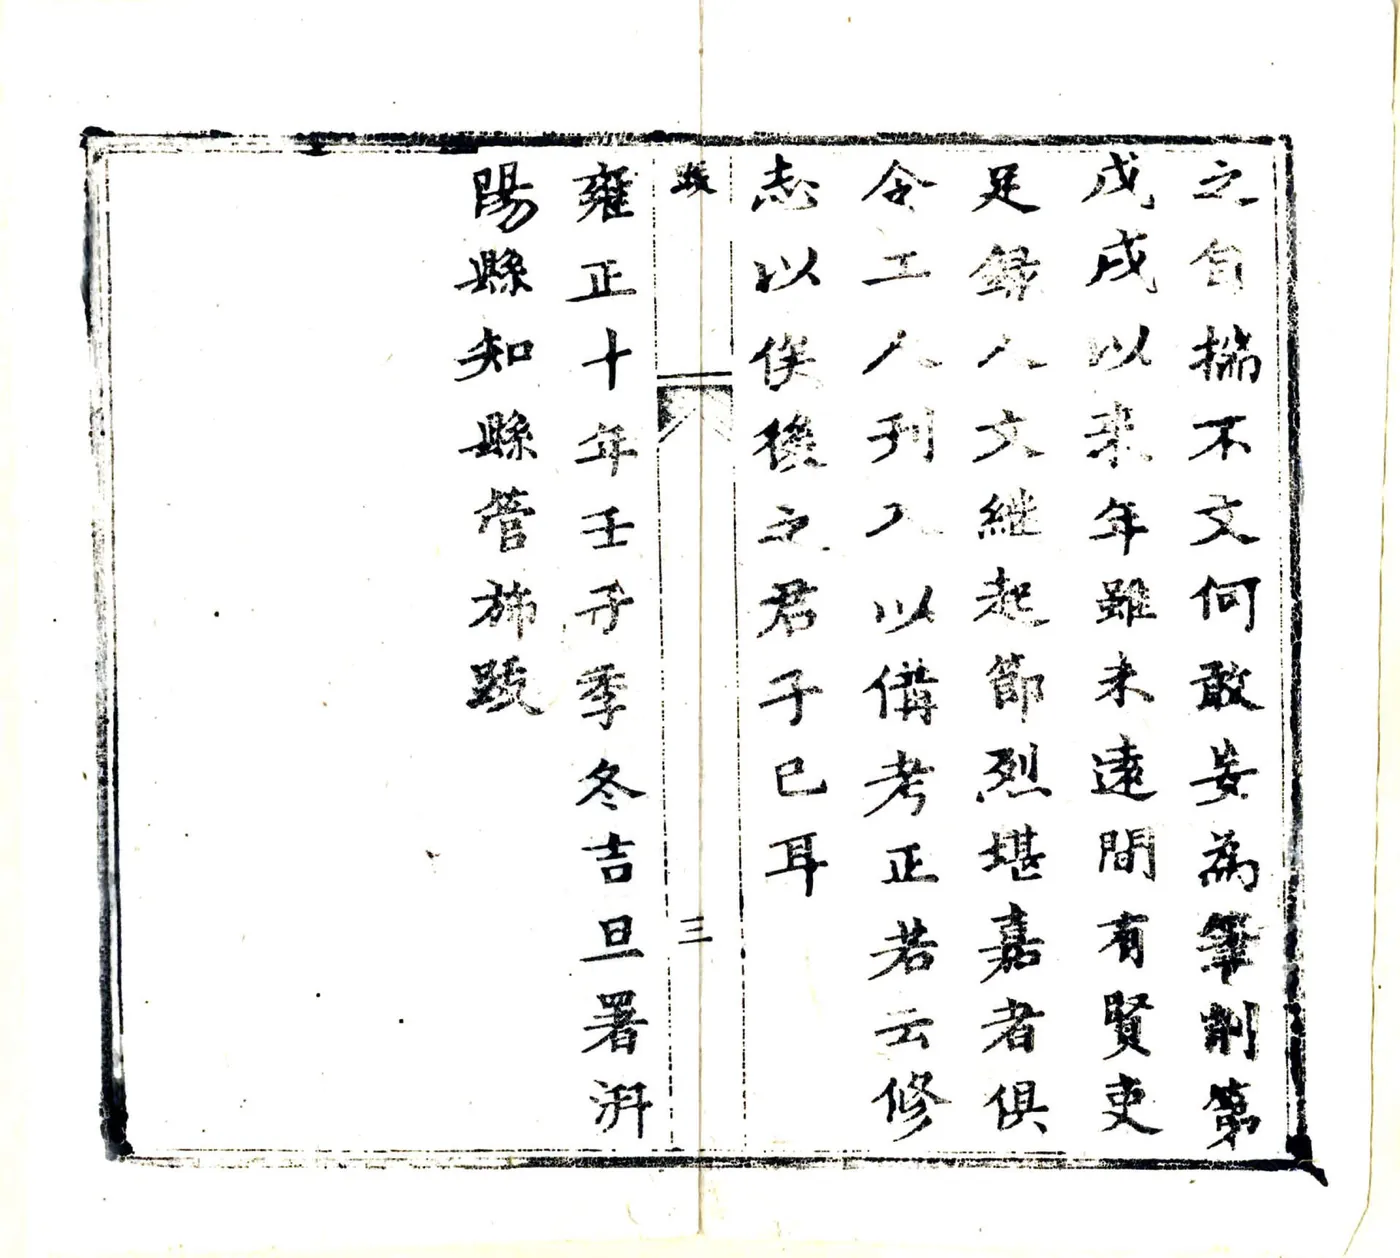 之自揣不文何敢妄為筆削第
戊戌以來年雖未遠間有賢吏
足錄人文継起節烈堪嘉者俱
令工人刊入以備考正若云修
志以俟後之君子已耳
跋
三
雍正十年壬子季冬吉旦署汧
陽縣知縣管旆跋